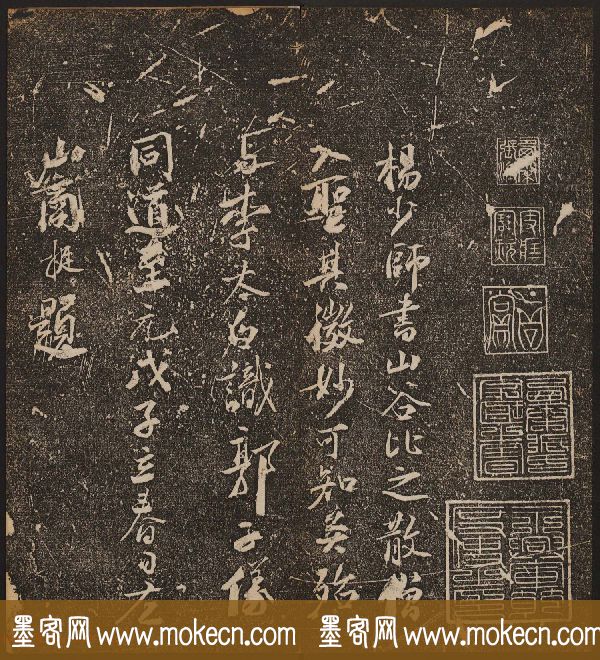 楊少師書山谷比之散僧
入聖其微妙可知矣殆
与李太白識郭子儀
同道至元戊子立春日左
山商挺題
墨客网www.mokecn.com 墨客网www.mokecn.com